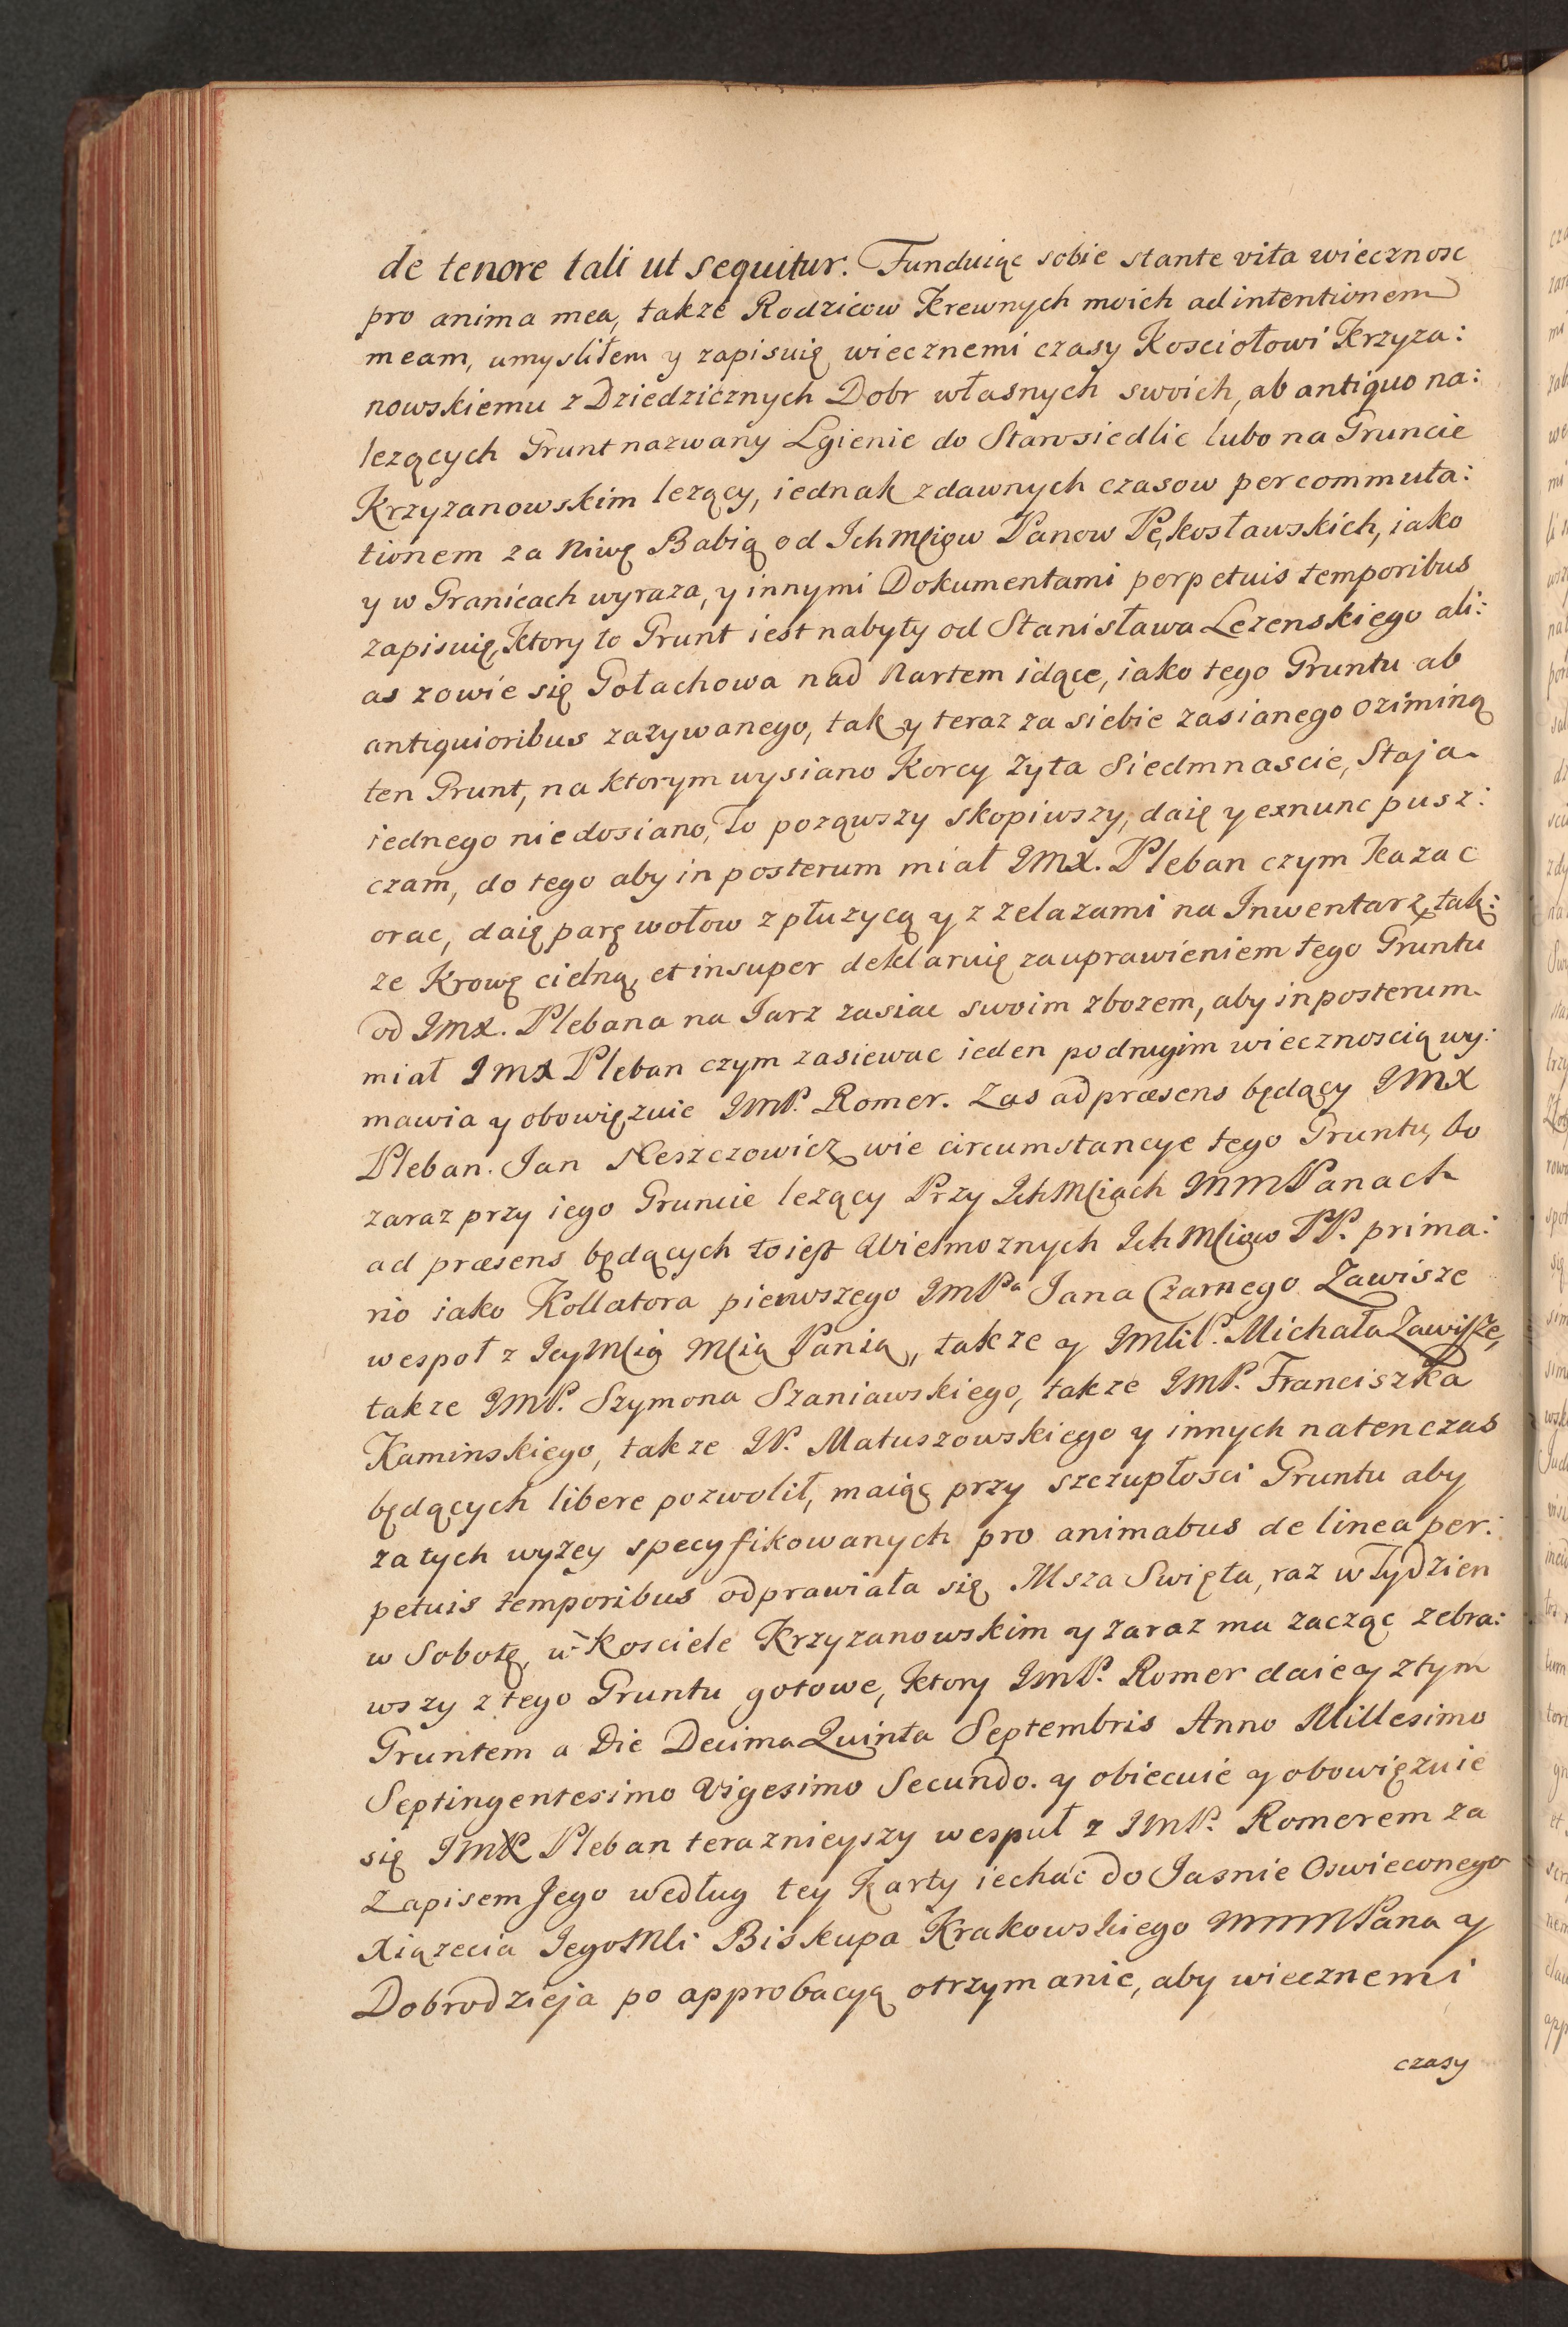 de tenore tali ut sequitur. Funduiąc sobie stante vita wiecznosc
pro anima mea, takze Rodzicow Krewnych moich ad intentionem
meam, umysliłem y zapisuię wiecznemi czasy Kosciołowi Krzyza:
nowskiemu z Dziedzicznych Dobr własnych swoich, ab antiquo na:
lezących Grunt nazwany Lgienie do Starosiedlic lubo na Gruncie
Krzyzanowskim lezący, iednak zdawnych czasow per commuta:
tionem za Niwę Babią od Ichmciow Panow Pękosławskich, iako
y w Granicach wyraza, y innymi Dokumentami perpetuis temporibus
zapisuię, Ktory to Grunt iest nabyty od Stanisława Lezenskiego ali:
as zowie się Gołachowa nad Nartem idące, iako tego Gruntu ab
antiquioribus zazywanego, tak y teraz za siebie zasianego oziminą
ten Grunt, na ktorym wysiano Korcy Zyta Siedmnascie, Staja
iednego niedosiano, To pozawszy skopiwszy, daię y exnunc pusz:
czam, do tego aby in posterum miał JMX. Pleban czym Kazac
orac, daię parę wołow z płuzycą y z zelazami na Inwentarz, tak:
ze Krowę cielną, et insuper deklaruię za uprawieniem tego Gruntu
od JMX. Plebana na Jarz zasiac swoim zbozem, aby in posterum
miał JMX Pleban czym zasiewac ieden po drugim wiecznoscią wy:
mawia y obowięzuie JMP. Romer. Zas ad præsens będący JMX
Pleban. Jan Kleszczowicz wie circumstancye tego Gruntu, bo
zaraz przy iego Gruncie lezący Przy Ichmciach MMPanach
ad præsens będących to iest Wielmoznych Ichmciow PP. prima:
rio iako Kollatora pierwszego JMPa Jana Czarnego Zawisze
wespoł z Ieymcią Mcią Panią, takze y JMciP. Michała Zawisze,
takze JMP. Szymona Szaniawskiego, takze JMP. Franciszka
Kaminskiego, takze JP. Matuszowskiego y innych natenczas
będących libere pozwolił, maiąc przy szczupłosci Gruntu aby
za tych wyzey specyfikowanych pro animabus de linea per:
petuis temporibus odprawiała się Msza Swięta, raz w Tydzien
w Sobotę, w Kosciele Krzyzanowskim y zaraz ma zacząc zebra:
wszy z tego Gruntu gotowe, Ktory JMP. Romer daie y z tym
Gruntem a Die Decima Quinta Septembris Anno Millesimo
Septingentesimo Vigesimo Secundo. y obiecuie y obowięzuie
się JMX Pleban teraznieyszy wespuł z JMP. Romerem za
Zapisem Jego według tey Karty iechac do Jasnie Oswieconego
Xiązecia JegoMci Biskupa Krakowskiego MMMPana y
Dobrodzieja po approbacyą otrzymanie, aby wiecznemi
czasy